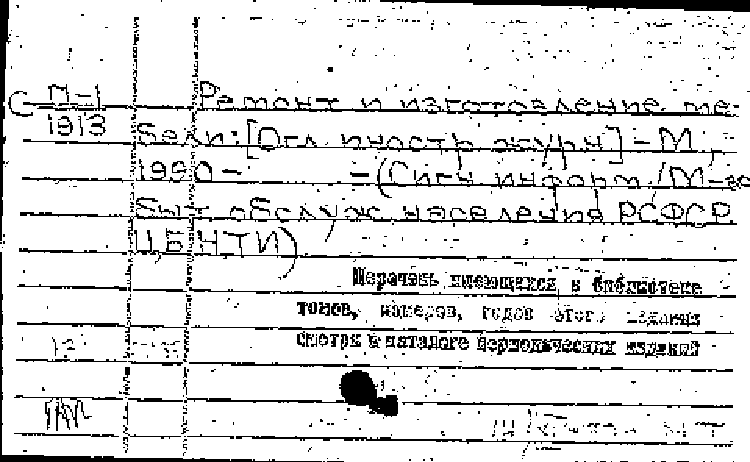 С П-1 Ремонт и изготовление ме-
1913 бели: [Огл. иностр. журн] - М.,
1990 - - (Сигн. информ. / М-во
быт. обслуж. населения РСФСР.
ЦБНТИ)
Перечень имеющихся в библиотеке
томов, номеров, годов этого издания
смотри в каталоге периодических изданий
12